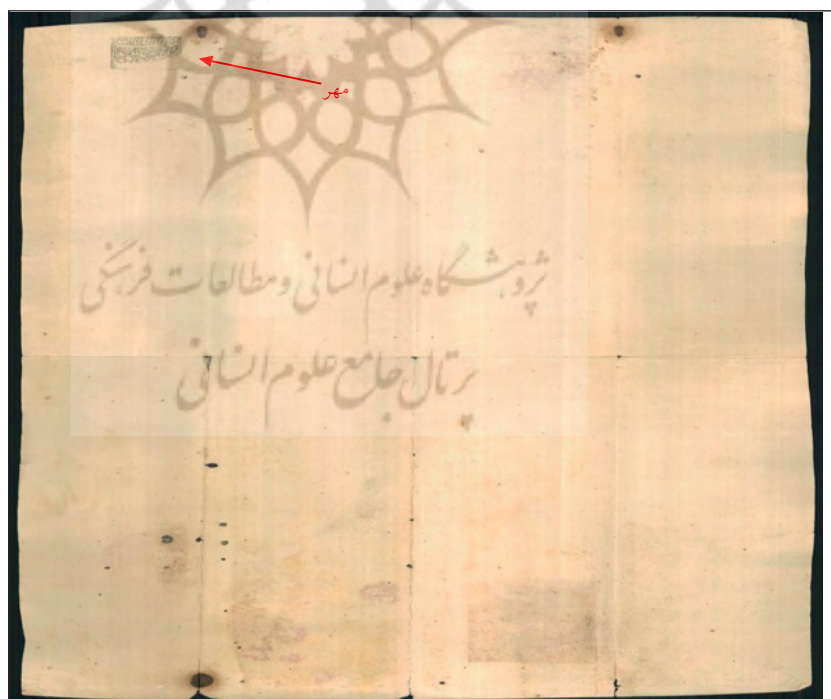 مهر
پژوهشگاه علوم انسانی و مطالعات فرهنگی
پرتال جامع علوم انسانی